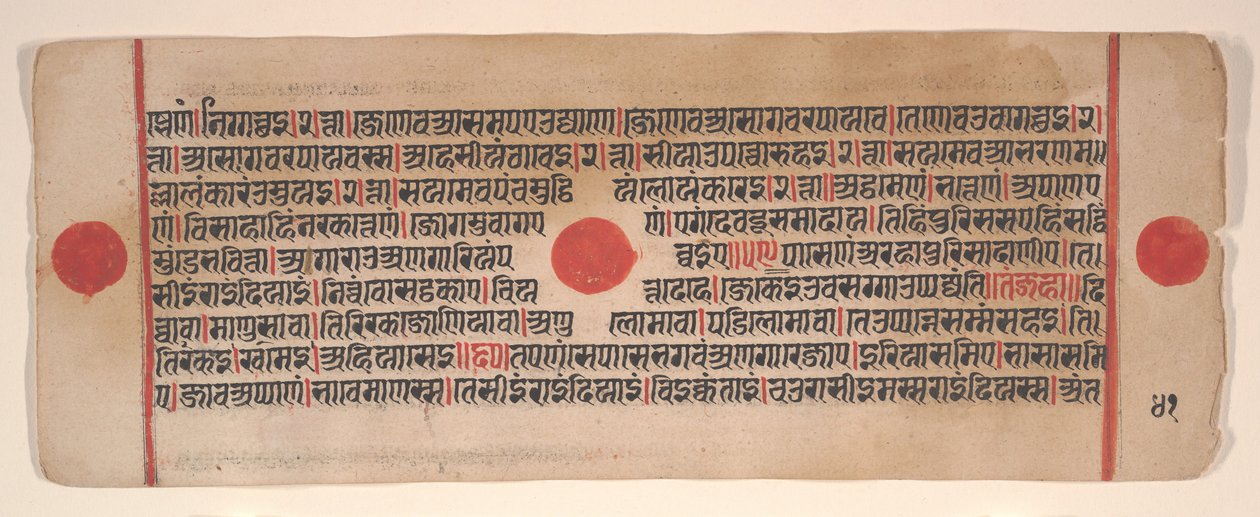 ज्झेणं।निगच्छइ।२त्ता।जेणेव आसमपए उज्जाणे।जेणेव असोगवरपायवे।तेणेव उवागच्छइ।२।
त्ता।असोगवरपायवस्स।अहे सीयं ठावेइ।२त्ता।सीयाउ पच्चोरुहइ।२त्ता।सयमेव आभरणम॥
ल्लालंकारं उमुयइ।२त्ता।सयमेव पंचमुट्ठियं लोयं करेइ।२त्ता॥अट्ठमेणं।भत्तेणं।अपाणए
णं।विसाहाहिं नरकत्तेणं।जोगमुवागएणं।एगं देवदूसमादाय।तिहिं पुरिससएहिं सद्धिं
मुंडे भवित्ता।अगाराउ अणगारियं पव्वइए॥५९ पासेणं अरहा पुरिसादाणीए।ते
सीइं राइंदियाइं।निच्चं वोसट्ठकाए।चियत्तदेहे।जे केइ उवसग्गा उप्पज्जंति॥तंजहा॥दि
व्वा वा।माणुसा वा।तिरिरकजोणिया वा।अणुलोमा वा।पडिलोमा वा।ते उप्पन्ने सम्मं सहइ।ति
तिरकइ।खमइ।अहियासेइ॥६०।तएणं से पासे भगवं अणगारे जाए।इरियासमिए।भासासमि
ए।जाव अप्पाणं।भावेमाणस्स।तेसीइं राइंदियाइं।विइक्कंताइं।चउरासीइमस्स राइंदियस्स।अंत
४१